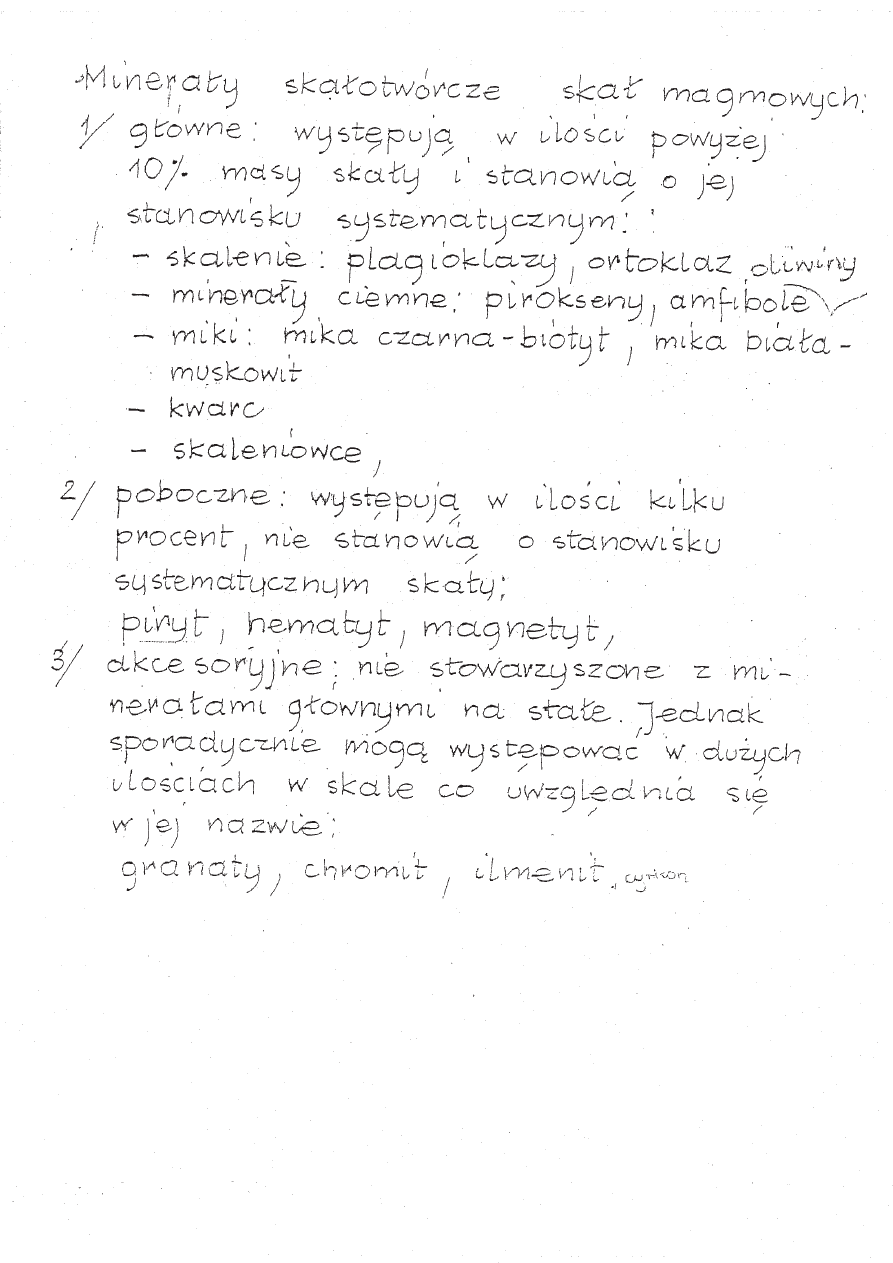 Minerały skałotwórcze skał magmowych:
1/ główne: występują w ilości powyżej
10% masy skały i stanowią o jej
stanowisku systematycznym:
- skalenie: plagioklazy, ortoklaz oliwiny
- minerały ciemne: pirokseny, amfibole
- miki: mika czarna-biotyt, mika biała-
muskowit
- kwarc
- skaleniowce,
2/ poboczne: występują w ilości kilku
procent, nie stanowią o stanowisku
systematycznym skały:
piryt, hematyt, magnetyt,
3/ akcesoryjne: nie stowarzyszone z mi-
nerałami głównymi na stałe. Jednak
sporadycznie mogą występować w dużych
ilościach w skale co uwzględnia się
w jej nazwie:
granaty, chromit, ilmenit, cyrkon